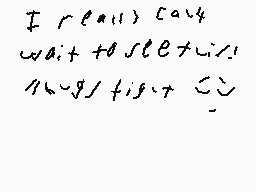 I really can't
wait to see this!
fight